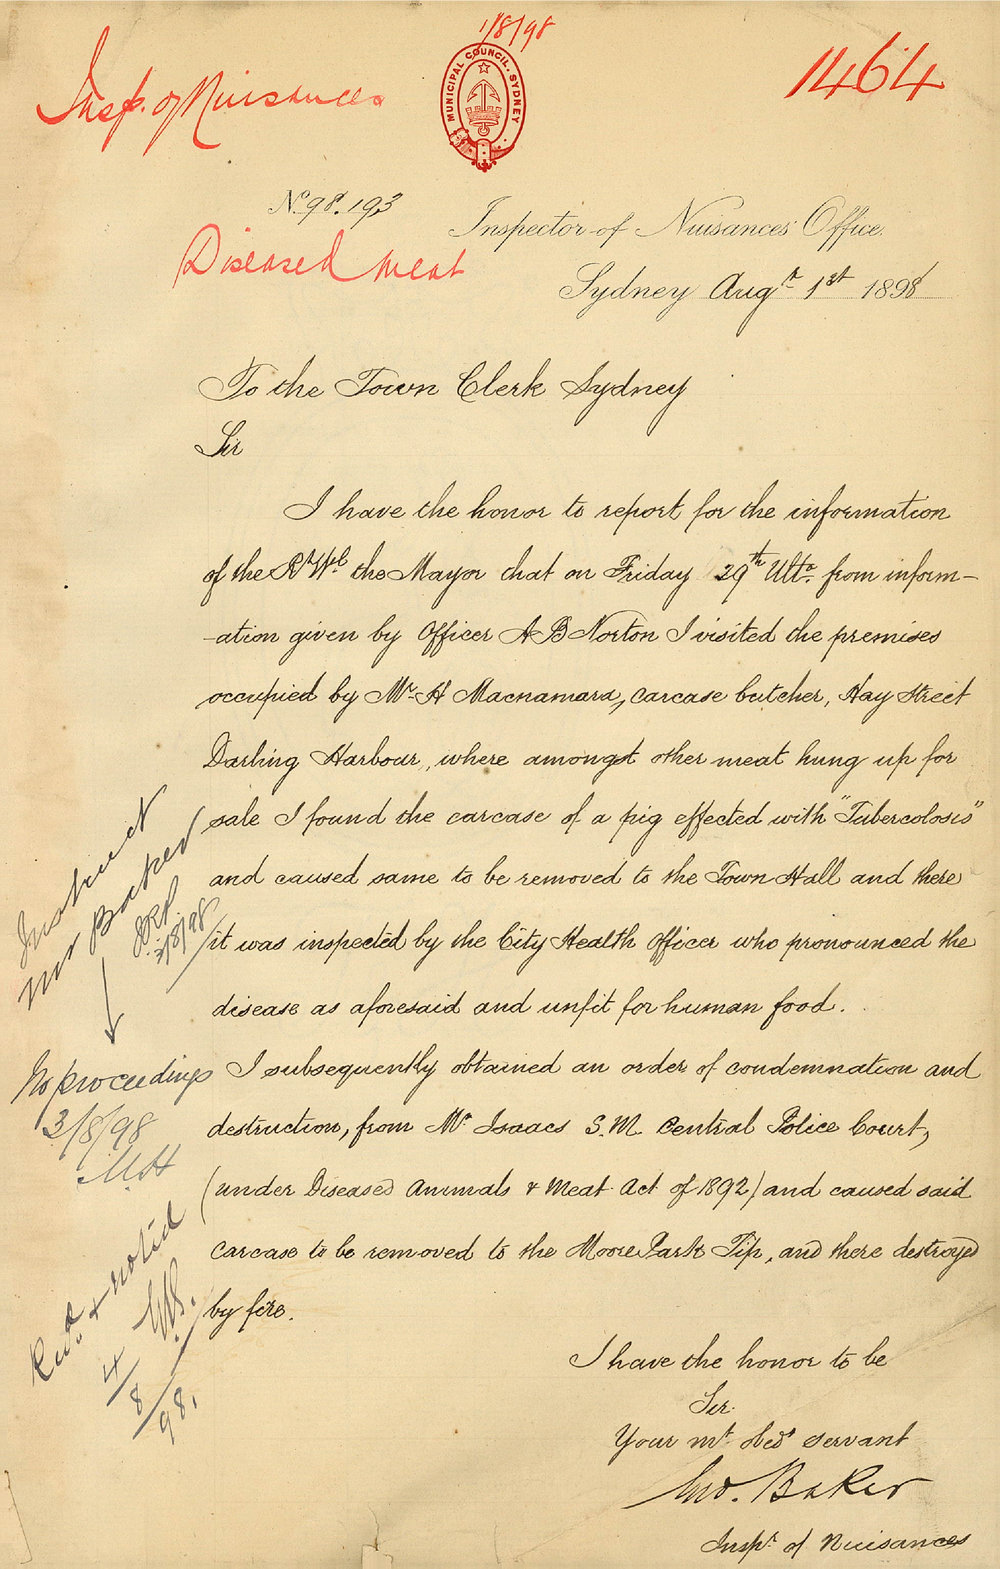 1/8/98
Insp. of Nuisances
1464
MUNICIPAL COUNCIL. SYDNEY
No. 98.193
Inspector of Nuisances' Office.
Diseased Meat
Sydney Augt 1st 1898
To the Town Clerk Sydney
Sir
I have the honor to report for the information
of the Rt Wl the Mayor that on Friday 29th Ulto. from inform-
-ation given by Officer A B Norton I visited the premises
occupied by Mr H Macnamara, carcase butcher, Hay Street
Darling Harbour, where amongst other meat hung up for
sale I found the carcase of a pig effected with "Tubercolosis"
and caused same to be removed to the Town Hall and there
it was inspected by the City Health Officer who pronounced the
disease as aforesaid and unfit for human food.
I subsequently obtained an order of condemnation and
destruction, from Mr Isaacs S.M. Central Police Court,
(under Diseased Animals & Meat Act of 1892) and caused said
carcase to be removed to the Moore Park Tip, and there destroyed
by fire.
I have the honor to be
Sir
Your mt obedt servant
Jno. Baker
Inspr of Nuisances
Instruct
Mr Baker
/8/98
No proceedings
3/8/98
Recd & noted
4/8/98.